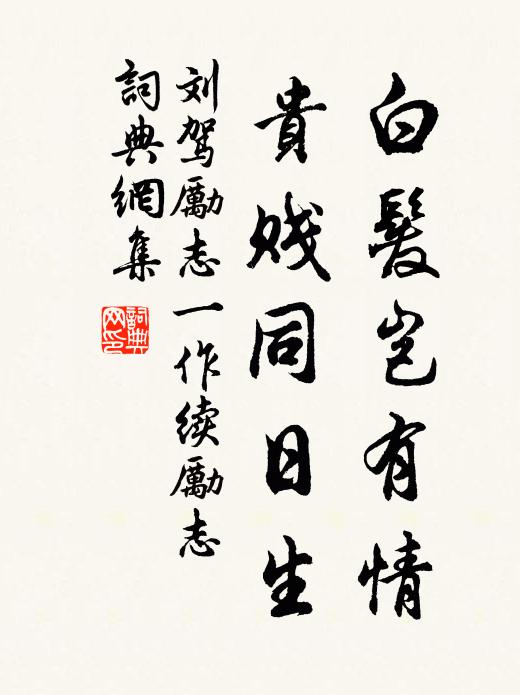 白髮岂有情
貴贱同日生
刘驾勵志一作续勵志
詞典網集
詞典网印